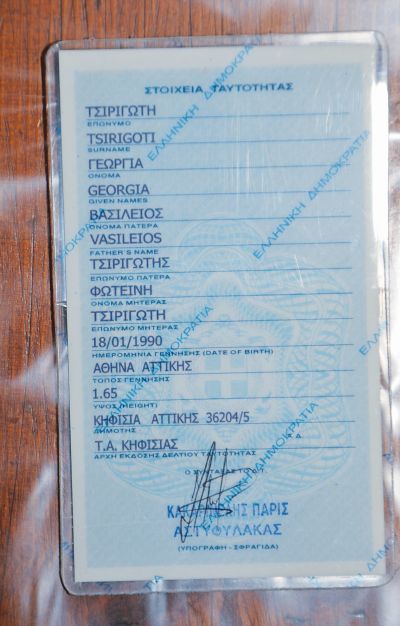 ΣΤΟΙΧΕΙΑ ΤΑΥΤΟΤΗΤΑΣ
ΤΣΙΡΙΓΩΤΗ
ΕΠΩΝΥΜΟ
TSIRIGOTI
SURNAME
ΓΕΩΡΓΙΑ
ΟΝΟΜΑ
GEORGIA
GIVEN NAMES
ΒΑΣΙΛΕΙΟΣ
ΟΝΟΜΑ ΠΑΤΕΡΑ
VASILEIOS
FATHER'S NAME
ΤΣΙΡΙΓΩΤΗΣ
ΕΠΩΝΥΜΟ ΠΑΤΕΡΑ
ΦΩΤΕΙΝΗ
ΟΝΟΜΑ ΜΗΤΕΡΑΣ
ΤΣΙΡΙΓΩΤΗ
ΕΠΩΝΥΜΟ ΜΗΤΕΡΑΣ
18/01/1990
ΗΜΕΡΟΜΗΝΙΑ ΓΕΝΝΗΣΗΣ (DATE OF BIRTH)
ΑΘΗΝΑ ΑΤΤΙΚΗΣ
ΤΟΠΟΣ ΓΕΝΝΗΣΗΣ
1.65
ΥΨΟΣ (HEIGHT)
ΚΗΦΙΣΙΑ ΑΤΤΙΚΗΣ 36204/5
ΔΗΜΟΤΗΣ
Τ.Α. ΚΗΦΙΣΙΑΣ
ΑΡΧΗ ΕΚΔΟΣΗΣ ΔΕΛΤΙΟΥ ΤΑΥΤΟΤΗΤΑΣ
ΠΑΡΙΣ
(ΥΠΟΓΡΑΦΗ - ΣΦΡΑΓΙΔΑ)
ΕΛΛΗΝΙΚΗ ΔΗΜΟΚΡΑΤΙΑ
ΕΛΛΗΝΙΚΗ ΔΗΜΟΚΡΑΤΙΑ
ΕΛΛΗΝΙΚΗ ΔΗΜΟΚΡΑΤΙΑ
ΕΛΛΗΝΙΚΗ ΔΗΜΟΚΡΑΤΙΑ